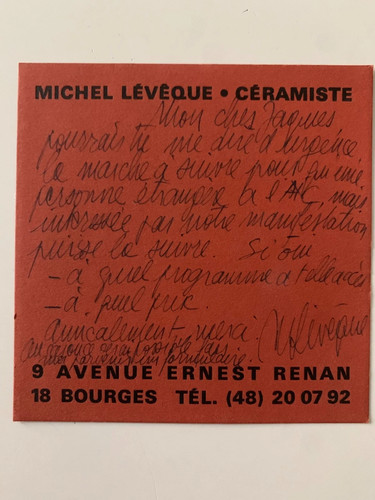 MICHEL LÉVÊQUE • CÉRAMISTE
Mon cher Jaques
pourrais tu me dire d'urgence
la marche à suivre pour qu'une
personne étrangère à l'A.C, mais
intéressée par notre manifestation,
puisse la suivre. Si oui
- à quel programme a t elle accès
- à quel prix.
amicalement, merci. MLévêque
au
9 AVENUE ERNEST RENAN
18 BOURGES TÉL. (48) 20 07 92